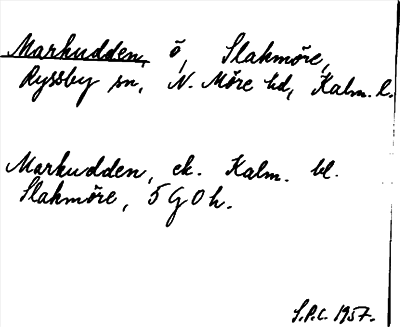 Markudden, ö, Slakmöre,
Ryssby sn, N. Möre hd, Kalm. l.
Markudden, ek. Kalm. bl.
Slakmöre, 5 G O h.
S.P.C. 1957.